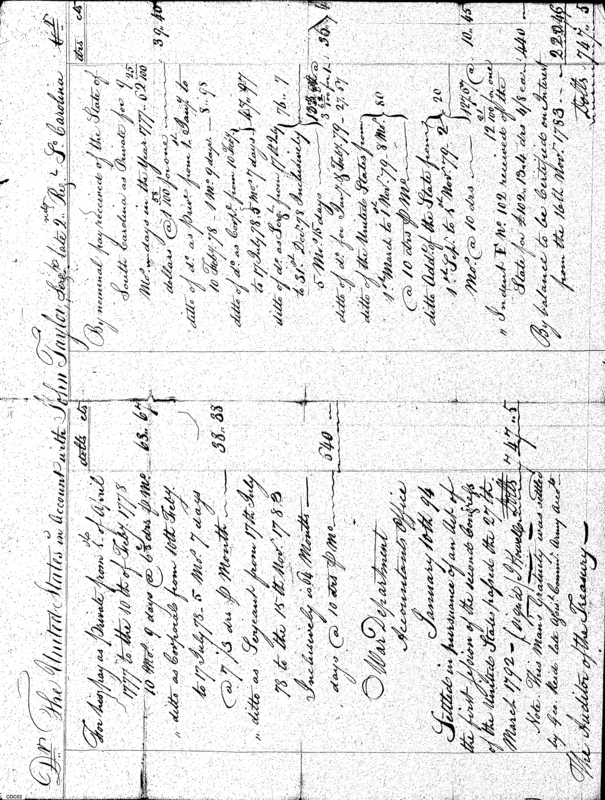 Dr The United States in Account with John Taylor, Serjt late 2nd Regt So Carolina Cr
dolls cts
For his pay as Private from 1st of April
1777 to the 10th of Feby 1778
10 Mos 9 days @ 6 2/3 drs P Mo 68.. 67
" ditto as Corporal from 10th Feby
to 17 July 78 - 5 Mos 7 days
@ 7 1/3 drs P Month 38.. 38
" ditto as Serjeant from 17th July
78 to the 15th Novr 1783
Inclusively is 64 Months
days @ 10 drs P Mo 640
War Department
Accountants Office
January 10th 94
Settled in pursuance of an Act of
the first session of the second Congress
of the United States passed the 27th
March 1792 - (signed) J Howell Dolls 747.. 5
Note This Man's Gratuity was settled
by Geo. Reid late Commr Army Accts
The Auditor of the Treasury -
drs cts
By nominal pay received of the State of
South Carolina as Private for 9
Mos days in the Year 1777 - 62
dollars @ 100 for one 39.. 40
ditto of do as Privt from 1st Jany to
10 Feby 78 - 1 Mo 9 days - 8.. 78
ditto of do as Corpl from 10 Feby
to 17 July 78 5 Mos 7 days 47.. 97
ditto of do as Serjt from 17 July
to 31st Decr 78 Inclusively
5 Mos 15 days 36
ditto of do for Jany & Feby 79 - 27.. 57
ditto of the United States from
1st March to 1st Novr 79 8 Mos 80
@ 10 drs P Mo
ditto Addl of the State from
1st Sept to 1st Novr 79 - 2 20
Mos @ 10 drs
10.. 45
" Indent F No 102 received of the
State for £102.. 13.. 4 drs 4/8 ea 440
By balance to be Certified on Interest
from the 16th Novr 1783 220.. 46
Dolls 747.. 5
CDC02